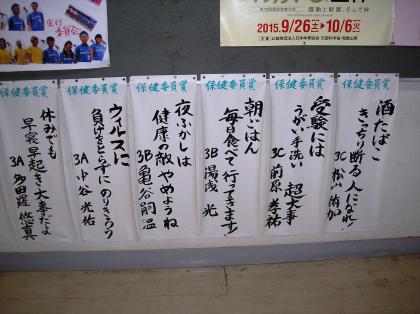 2015.9/26㊏ 10/6㊋
保健委員賞
酒たばこ
きっちり断る人になれ!
3C 松山侑加
保健委員賞
受験には
うがい手洗い 超大事
3C 前原孝祐
保健委員賞
朝ごはん
毎日食べて行ってきます!
3B 湯浅光
保健委員賞
夜ふかしは
健康の敵やめようね
3B 亀谷嗣温
保健委員賞
ウィルスに
負けをとらずにのりきろう
3A 中谷光佑
保健委員賞
休みでも
早寝早起き大事だよ
3A 多田羅悠真